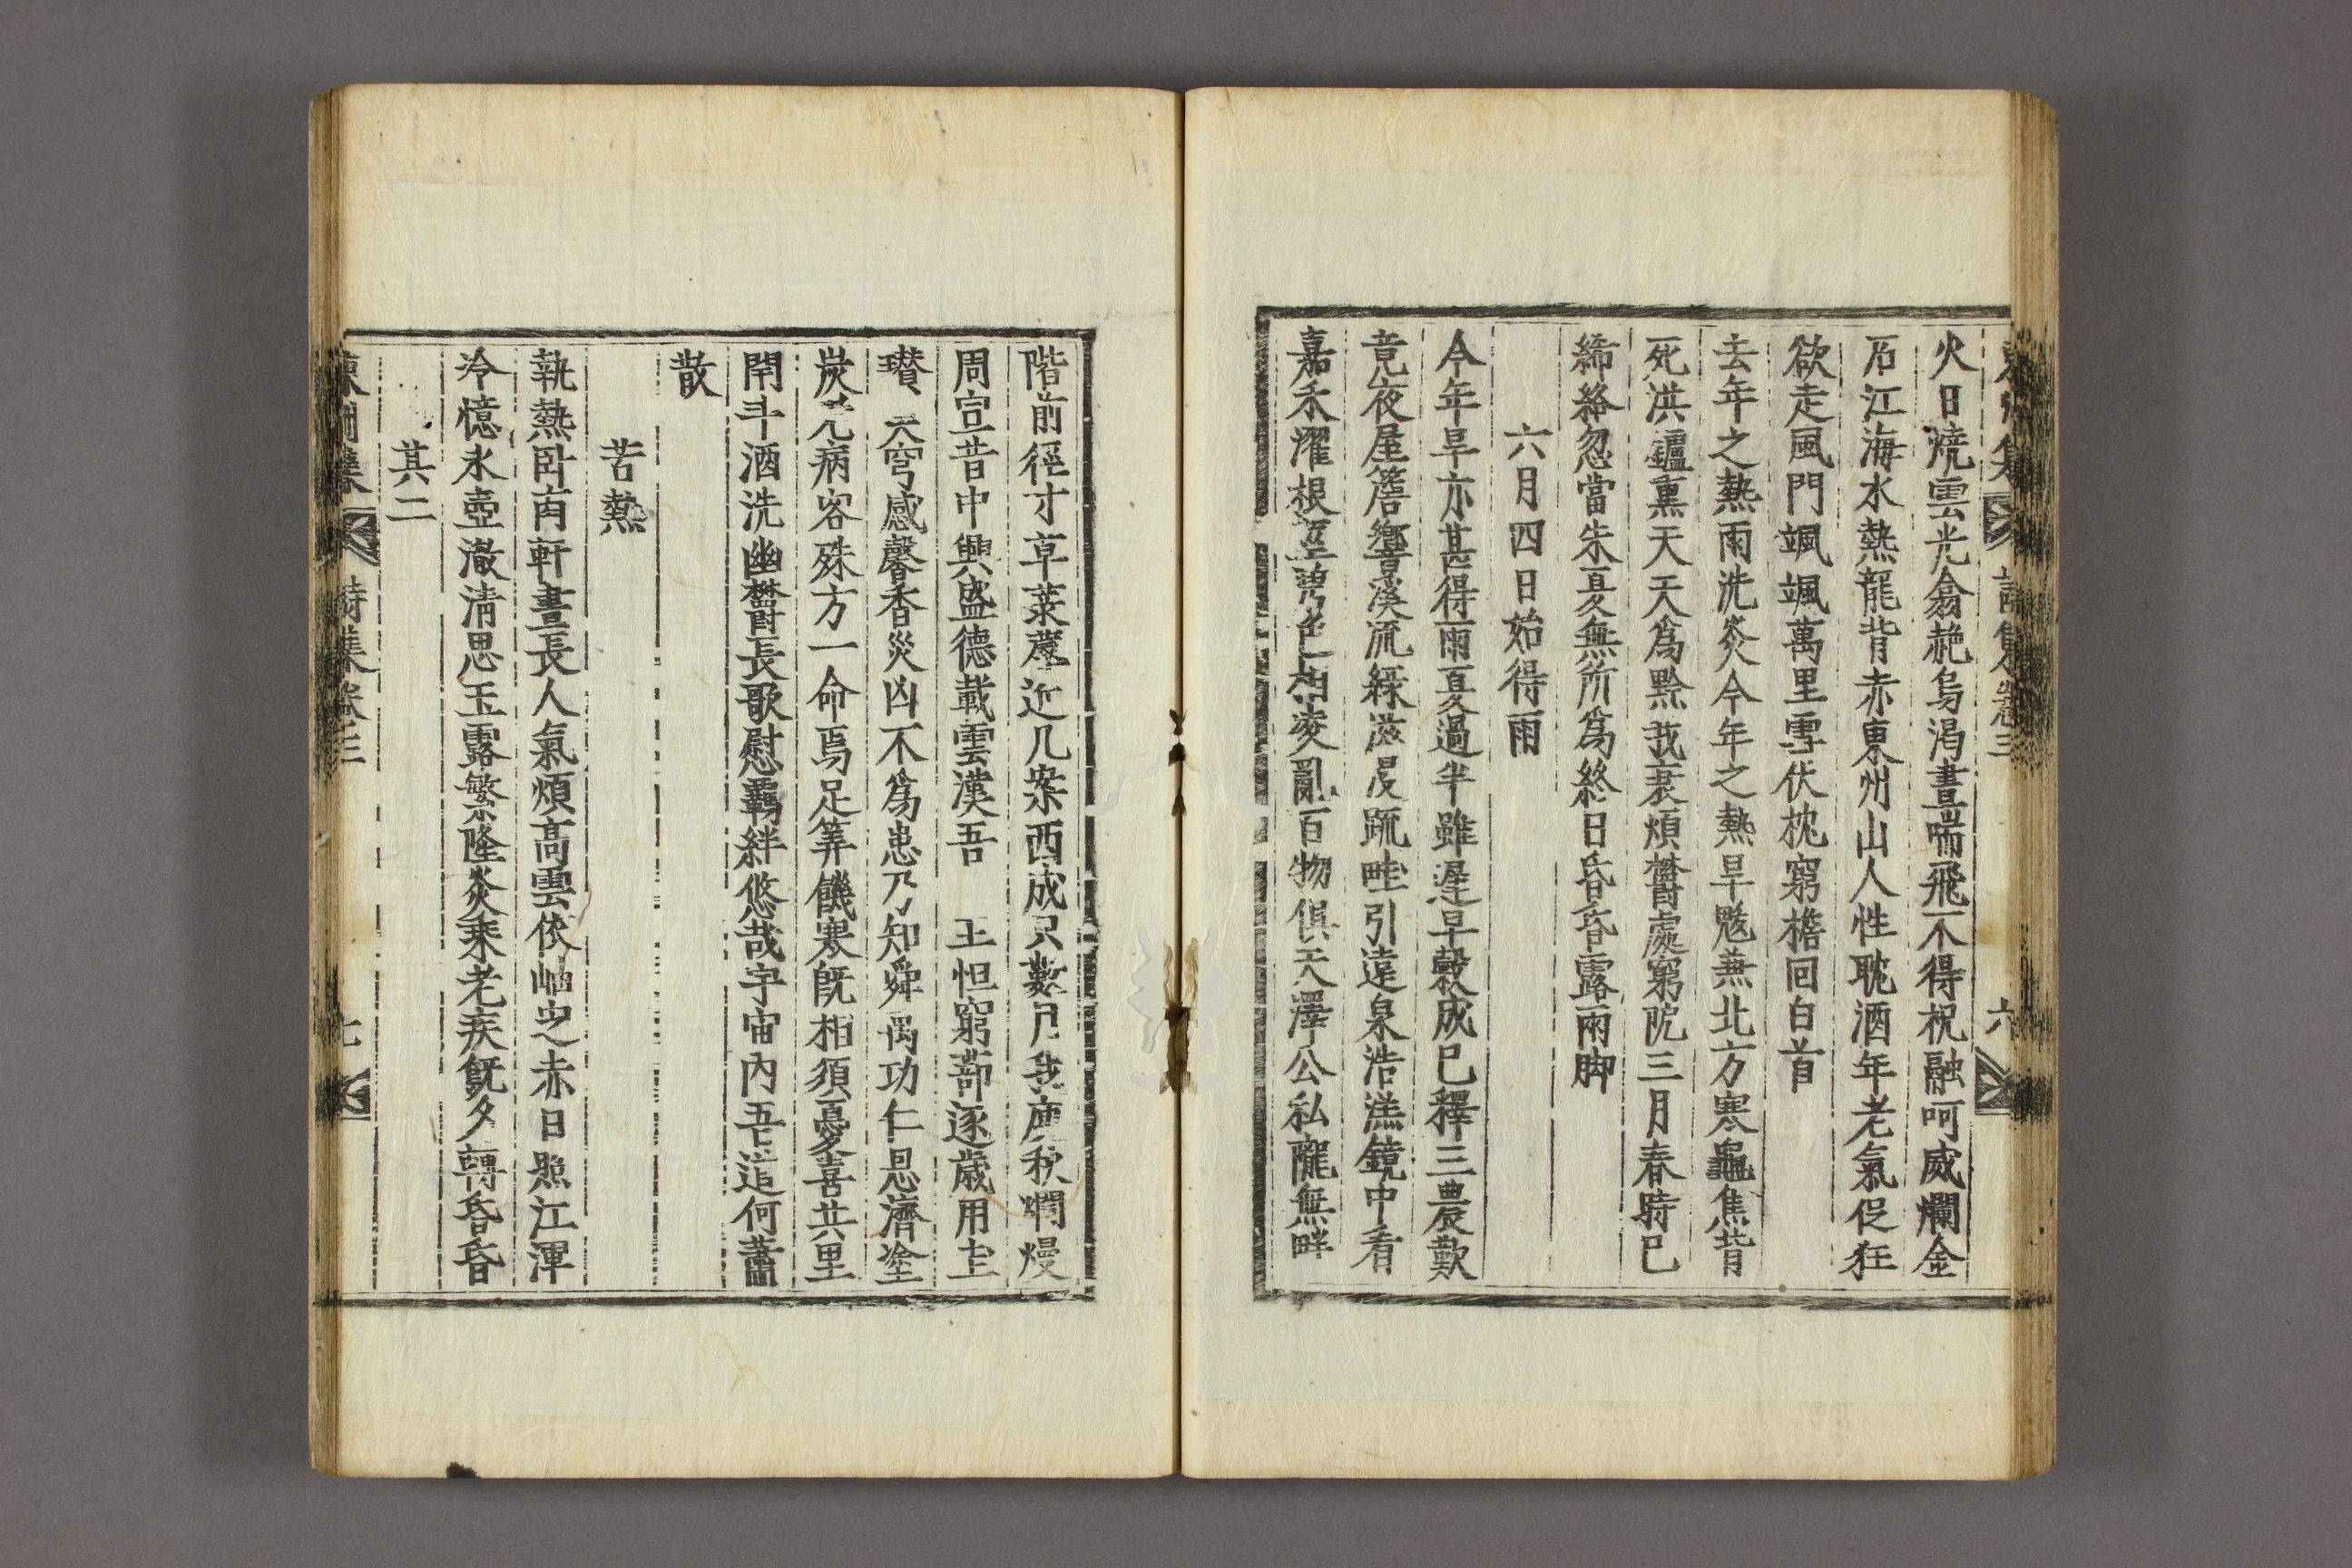 火日燒雲光翕赩烏渴晝喘飛不得祝融呵威爛金
石江海水熱龍背赤東州山人性耽酒年老氣促狂
欲走風門颯颯萬里雪伏枕窮檐回白首
去年之熱雨洗炎今年之熱旱魃兼北方寒龜焦背
死洪鑪熏天天爲黔我衰煩欝處窮阨三月春時已
絺綌忽當朱夏無所爲終日昏昏露兩脚
六月四日始得雨
今年旱亦甚得雨夏過半雖遲早穀成已釋三農歎
竟夜屋簷響溪流綠滋漫疏畦引遠泉浩漾鏡中看
嘉禾濯根莖碧色相凌亂百物俱天澤公私隴無畔
階前徑寸草菜蔑近几案西成只數月我庾秋爛熳
周宣昔中興盛德載雲漢吾 王怛窮蔀逐歲用圭
瓚 天穹感馨香災凶不爲患乃知舜禹功仁恩濟塗
炭 病客殊方一命焉足筭饑寒旣相須憂喜共里
閈斗酒洗幽欝長歌慰羈絆悠哉宇宙內吾 何蕭
散
苦熱
執熱卧南軒晝長人氣煩高雲依岫 赤日照江渾
冷憶氷壺澈清思玉露繁隆炎乘老疾旣夕轉昏昏
其二
東州集 詩集卷三 七